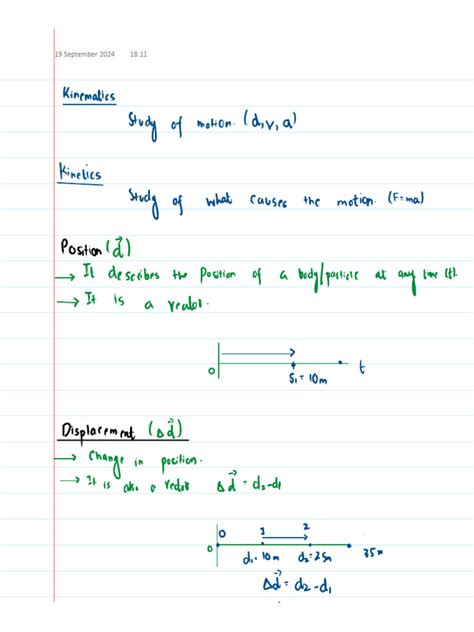 19 September 2024 18:11
Kinematics
Study of motion. (d, v, a)
Kinetics
Study of what causes the motion. (F=ma)
Position (d⃗)
→ It describes the position of a body/particle at any time (t).
→ It is a vector.
0 t
S₁ = 10m
Displacement (Δd⃗)
→ Change in position.
→ It is also a vector Δd⃗ = d₂-d₁
0 1 2
0 d₁=10m d₂=25m 35m
Δd⃗ = d₂-d₁